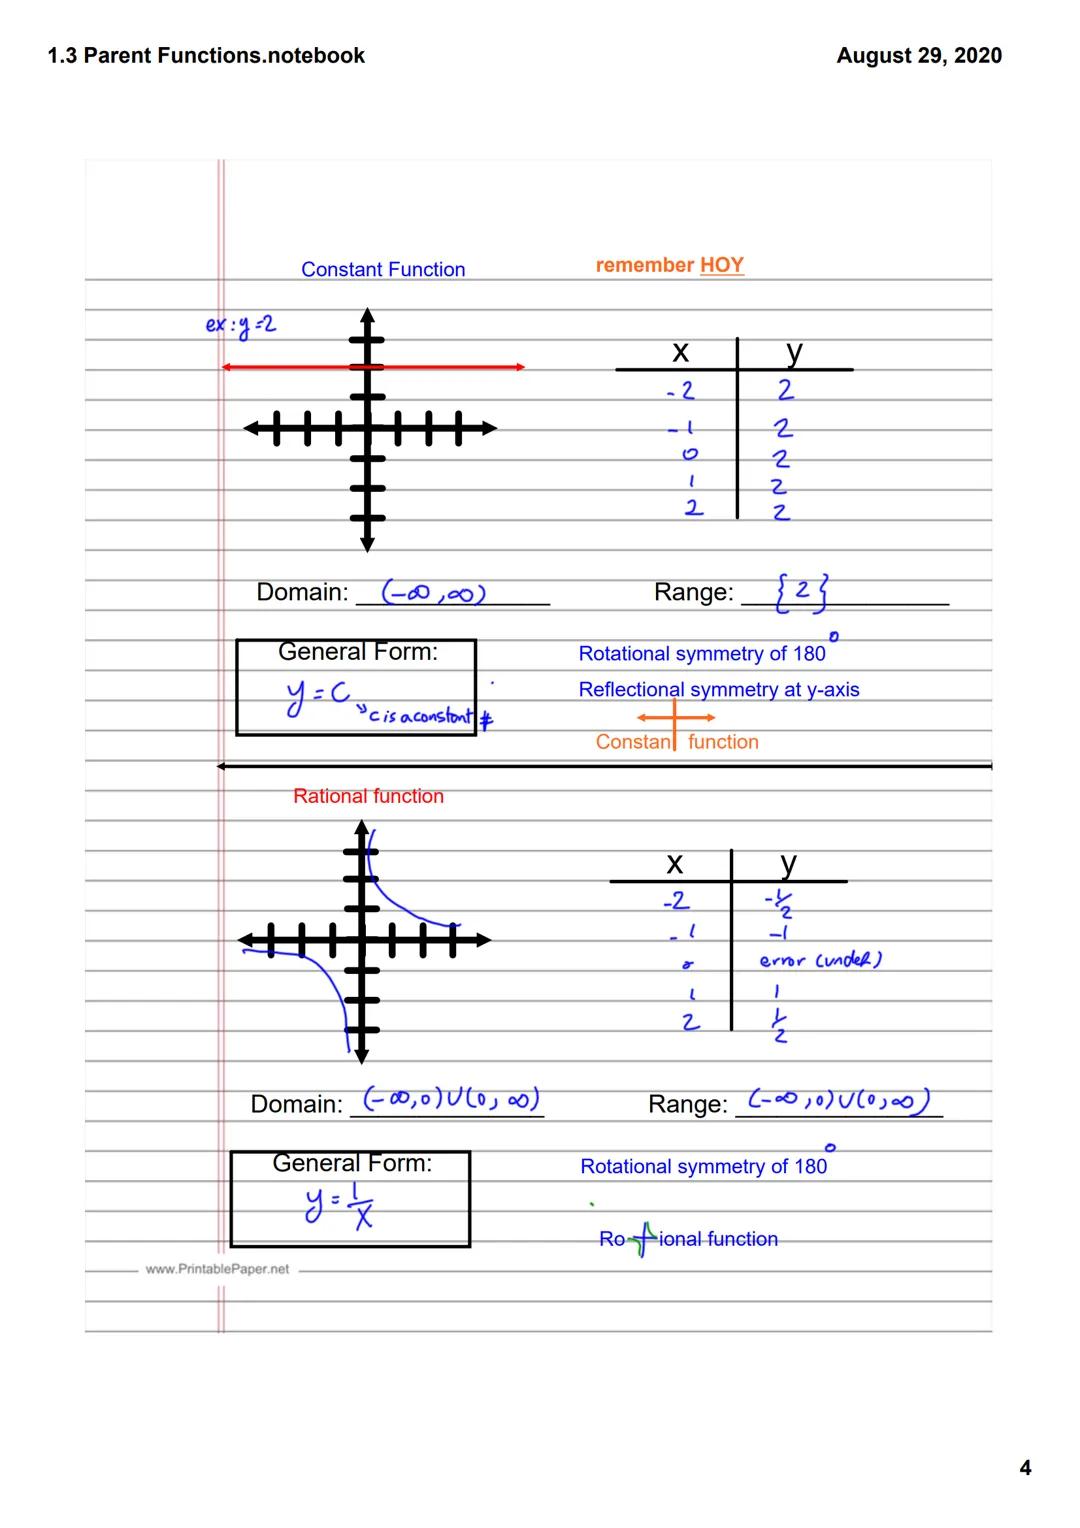 1.3 Parent Functions.notebook
August 29, 2020
Constant Function
remember HOY
ex: y=2
x y
-2 2
-1 2
0 2
1 2
2 2
Domain: (-∞,∞)
Range: {2}
General Form:
y=C
c is a constant #
Rotational symmetry of 180°
Reflectional symmetry at y-axis
Constan function
Rational function
x y
-2 -1/2
-1 -1
0 error (undef.)
1 1
2 1/2
Domain: (-∞,0)∪(0,∞)
Range: (-∞,0)∪(0,∞)
General Form:
y=1/x
Rotational symmetry of 180°
Ro ional function
www.PrintablePaper.net
4